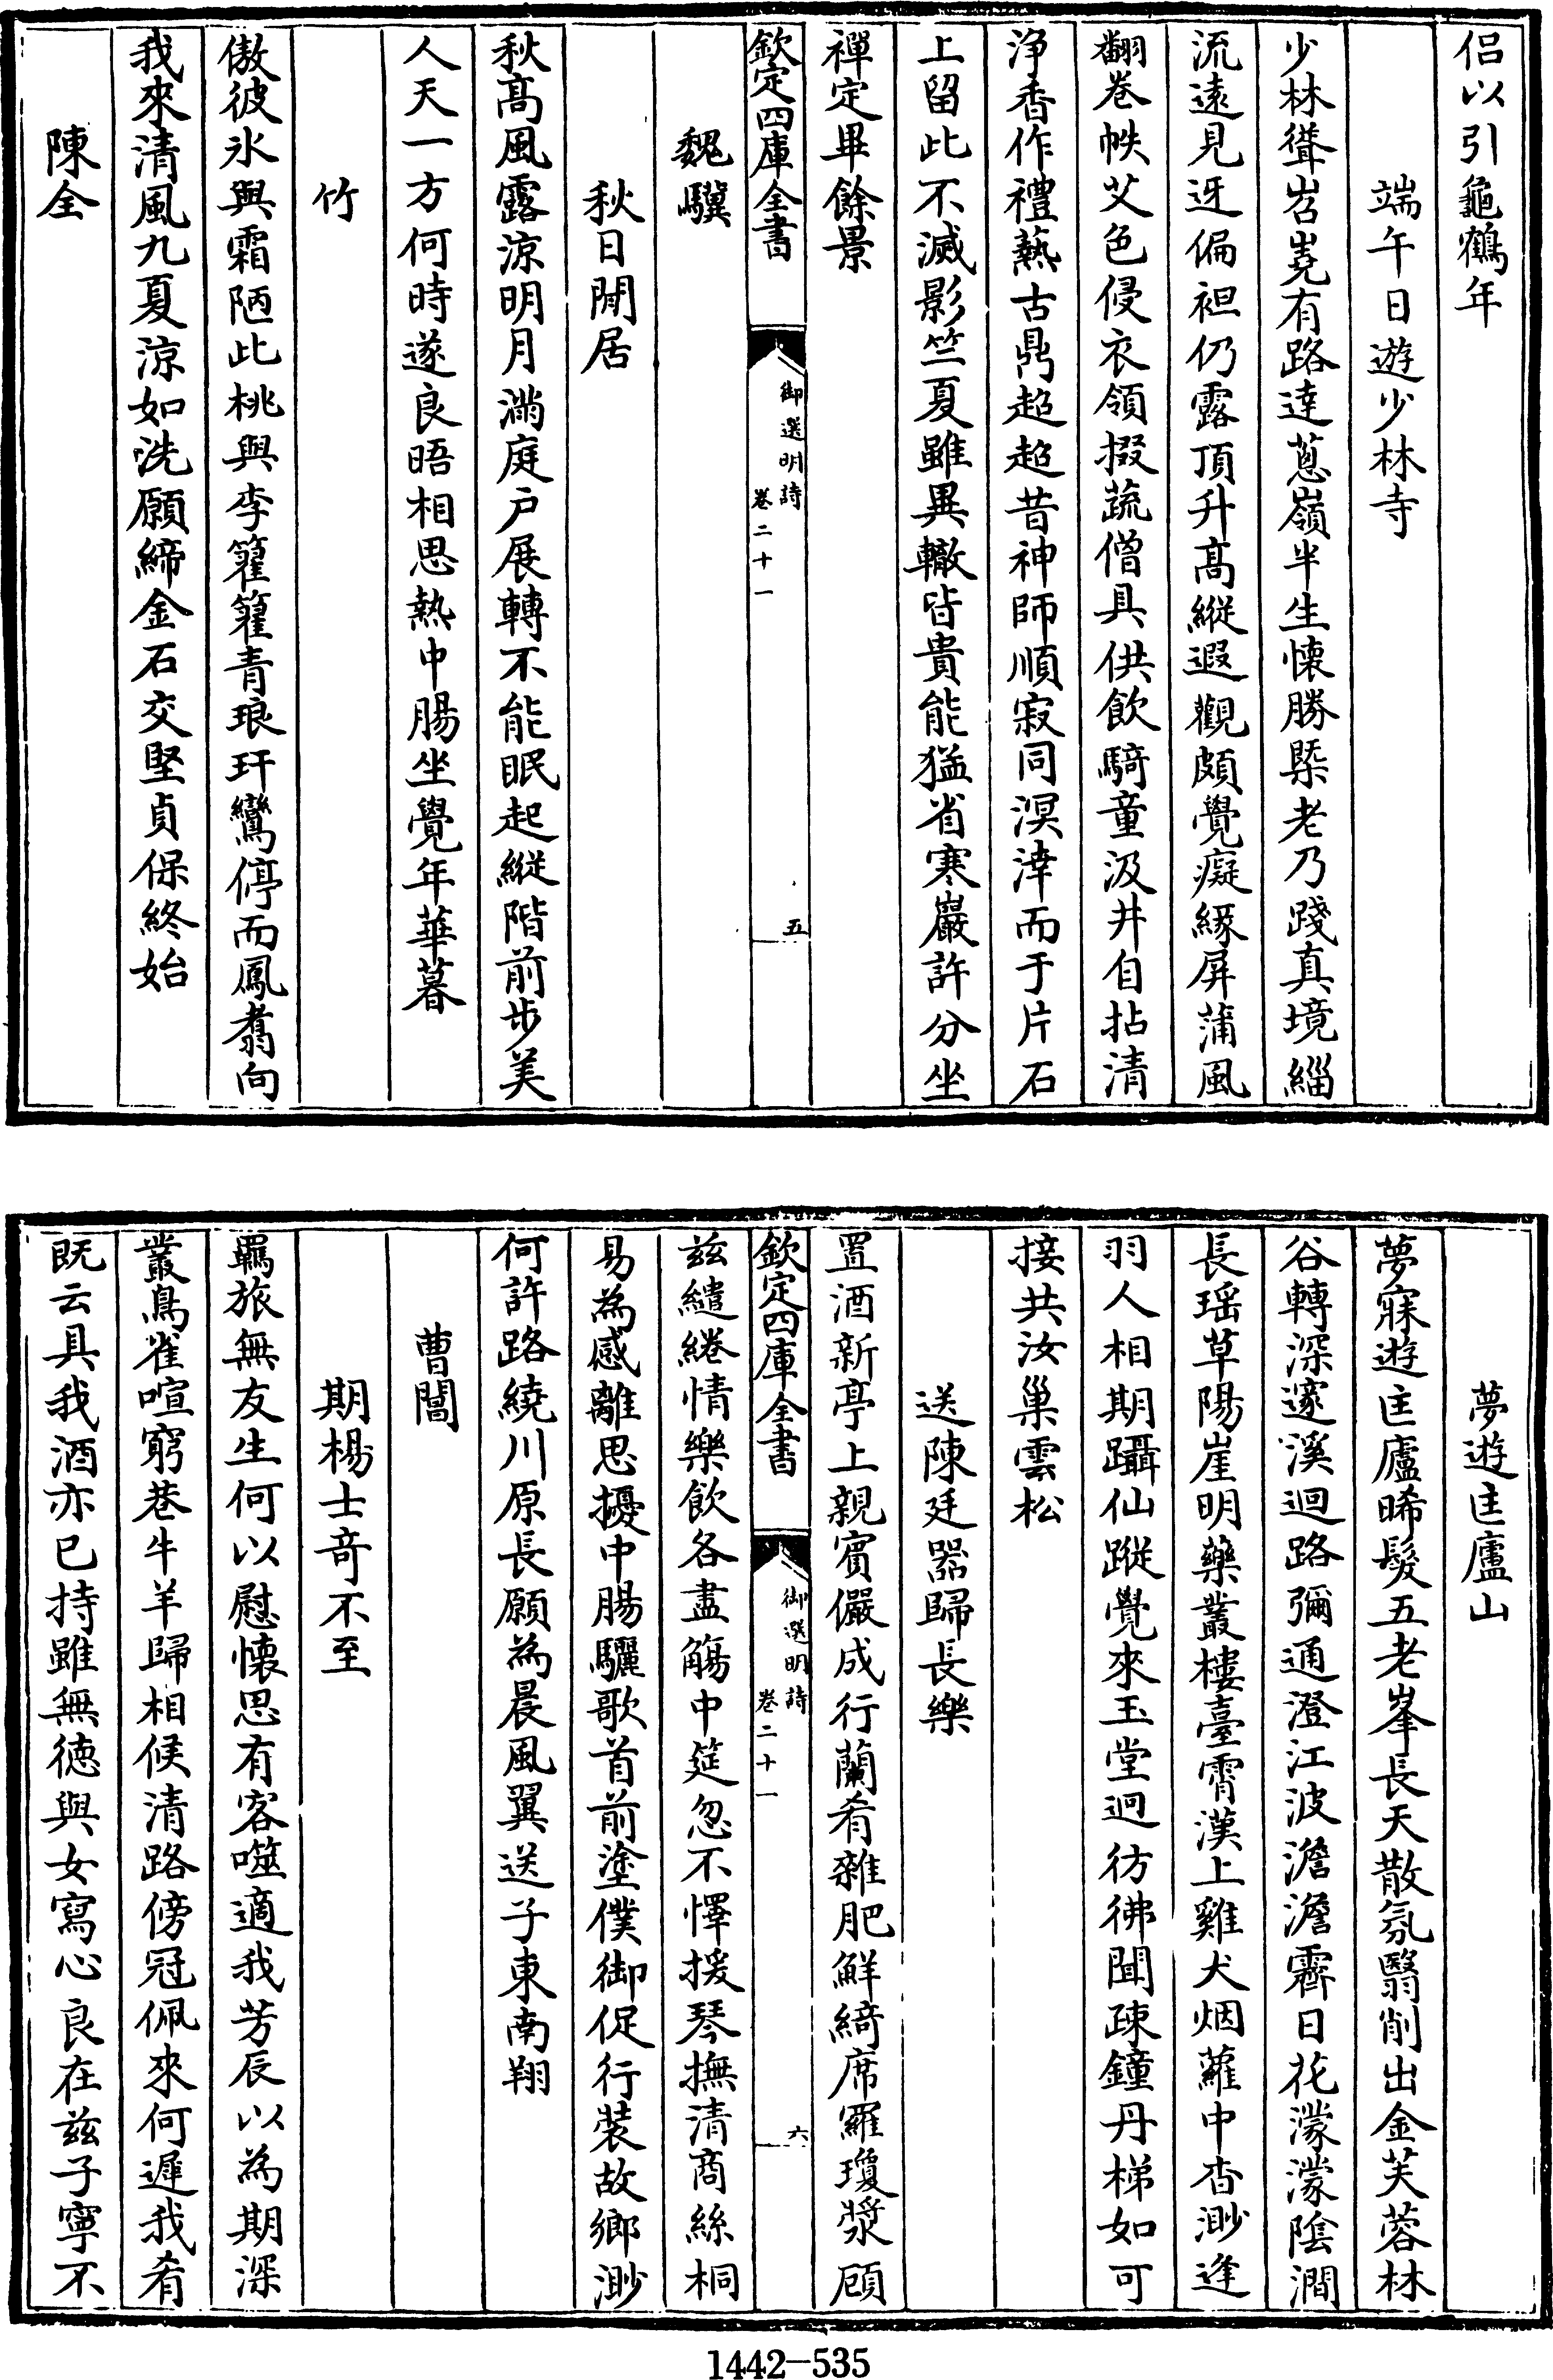 侣以引龜鶴年
端午日遊少林寺
少林聳岧嶤有路達蔥嶺半生懷勝槩老乃踐真境緇
流遠見迓偏袒仍露頂升髙縱遐觀頗覺癡緣屏蒲風
翻卷帙艾色侵衣領掇蔬僧具供飲騎童汲井自拈清
浄香作禮爇古鼎超超昔神師順寂同溟涬而于片石
上留此不滅影竺夏雖異轍皆貴能猛省寒巖許分坐
禪定畢餘景
欽定四庫全書
御選明詩
卷二十一
五
魏驥
秋日閒居
秋髙風露涼明月滿庭户展轉不能眠起縱階前步美
人天一方何時遂良晤相思熱中腸坐覺年華暮
竹
傲彼氷與霜陋此桃與李籊籊青琅玕鸞停而鳳翥向
我來清風九夏涼如洗願締金石交堅貞保終始
陳全
夢遊匡廬山
夢寐遊匡廬晞髮五老峯長天散氛翳削出金芙蓉林
谷轉深邃溪迴路彌通澄江波澹澹霽日花濛濛陰澗
長瑶草陽崖明藥叢樓臺霄漢上雞犬烟蘿中杳渺逢
羽人相期躡仙蹤覺來玉堂迥彷彿聞疎鐘丹梯如可
接共汝巢雲松
送陳廷器歸長樂
置酒新亭上親賓儼成行蘭肴雜肥鮮綺席羅瓊漿顧
欽定四庫全書
御選明詩
卷二十一
六
兹繾綣情樂飲各盡觴中筵忽不懌援琴撫清商絲桐
易為感離思擾中腸驪歌首前塗僕御促行裝故鄉渺
何許路繞川原長願為晨風翼送子東南翔
曹閶
期楊士竒不至
羈旅無友生何以慰懷思有客噬適我芳辰以為期深
叢鳥雀喧窮巷牛羊歸相候清路傍冠佩來何遲我肴
既云具我酒亦已持雖無徳與女寫心良在兹子寧不
1442-535